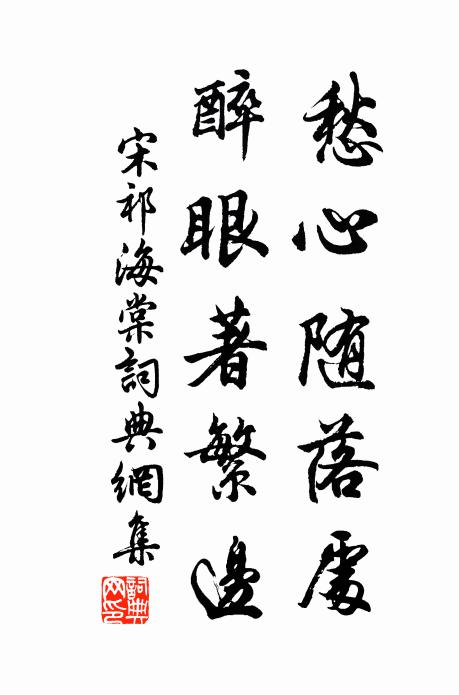 愁心随落處
醉眼著繁邊
宋祁海棠詞典網集
詞典網印